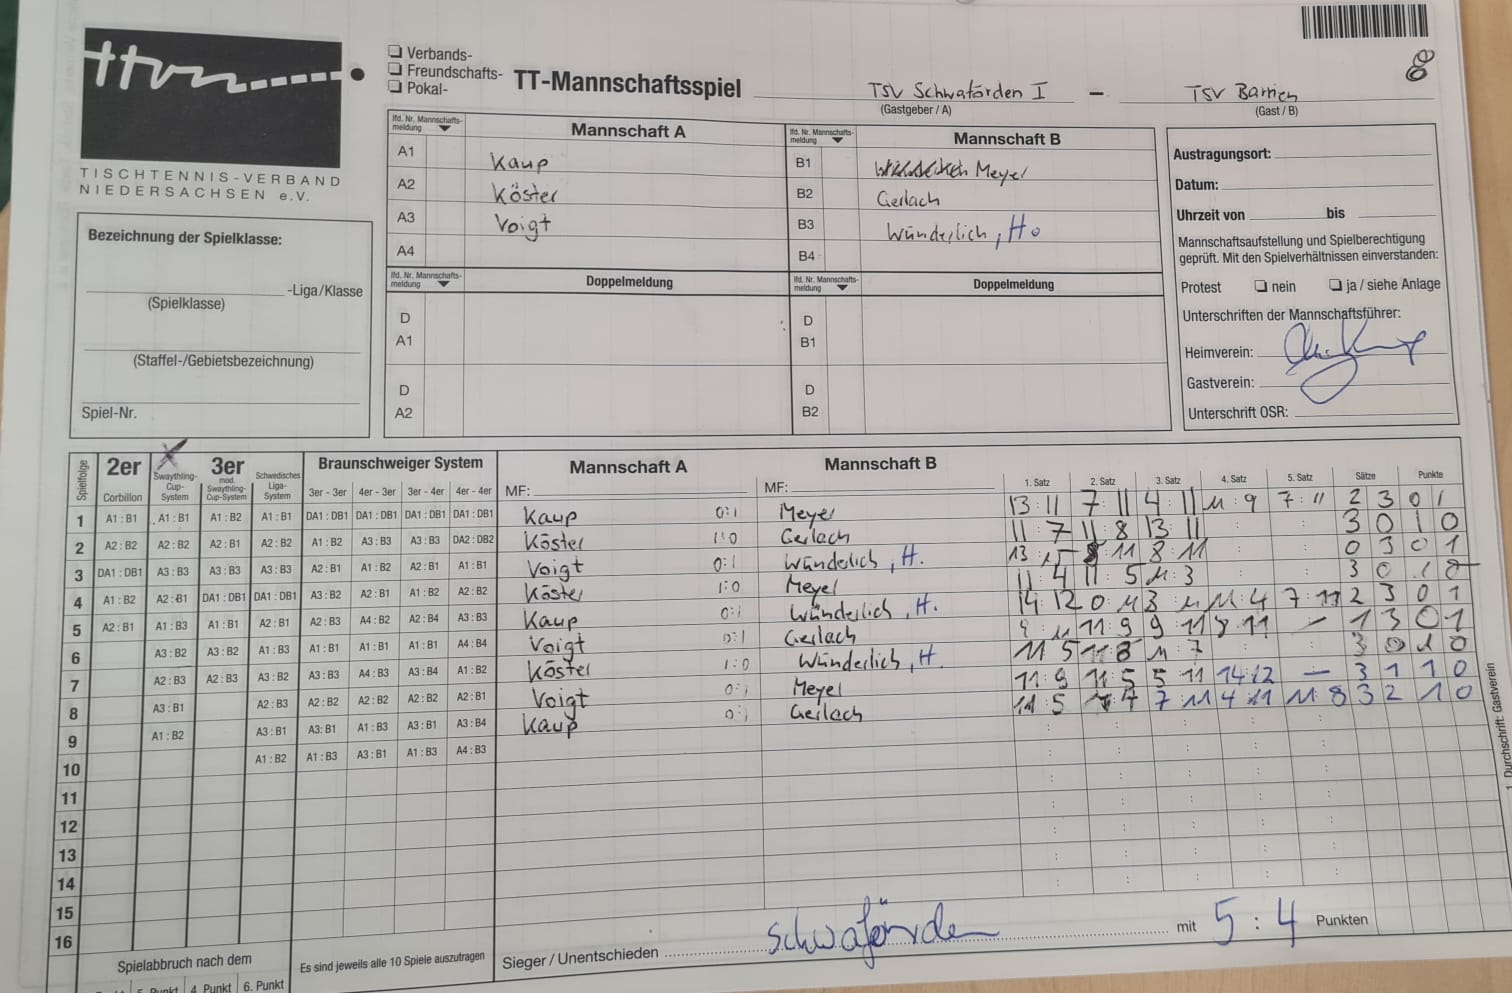 ttvn
TISCHTENNIS-VERBAND
NIEDERSACHSEN e.V.
Verbands-
Freundschafts-
Pokal-
TT-Mannschaftsspiel TSV Schwaförden I – TSV Barrien
(Gastgeber / A) (Gast / B)
8
lfd. Nr. Mannschafts-meldung Mannschaft A
A1 Kaup
A2 Köster
A3 Voigt
A4
lfd. Nr. Mannschafts-meldung Mannschaft B
B1 Meyer
B2 Gerlach
B3 Wünderlich, H.
B4
lfd. Nr. Mannschafts-meldung Doppelmeldung
D A1
D A2
lfd. Nr. Mannschafts-meldung Doppelmeldung
D B1
D B2
Austragungsort:
Datum:
Uhrzeit von bis
Mannschaftsaufstellung und Spielberechtigung
geprüft. Mit den Spielverhältnissen einverstanden:
Protest nein ja / siehe Anlage
Unterschriften der Mannschaftsführer:
Heimverein:
Gastverein:
Unterschrift OSR:
Bezeichnung der Spielklasse:
-Liga/Klasse
(Spielklasse)
(Staffel-/Gebietsbezeichnung)
Spiel-Nr.
Spielfolge 2er 3er Braunschweiger System Mannschaft A Mannschaft B
Corbillon Swaythling-Cup-System mod. Swaythling-Cup-System Schwedisches Liga-System 3er - 3er 4er - 3er 3er - 4er 4er - 4er MF: MF: 1. Satz 2. Satz 3. Satz 4. Satz 5. Satz Sätze Punkte
1 A1 : B1 A1 : B1 A1 : B2 A1 : B1 DA1 : DB1 DA1 : DB1 DA1 : DB1 DA1 : DB1 Kaup 0:1 Meyer 13:11 7:11 4:11 11:9 7:11 2 3 0 1
2 A2 : B2 A2 : B2 A2 : B1 A2 : B2 A1 : B2 A3 : B3 A3 : B3 DA2 : DB2 Köster 1:0 Gerlach 11:7 11:8 13:11 3 0 1 0
3 DA1 : DB1 A3 : B3 A3 : B3 A3 : B3 A2 : B1 A1 : B2 A2 : B1 A1 : B1 Voigt 0:1 Wünderlich, H. 13:15 8:11 8:11 0 3 0 1
4 A1 : B2 A2 : B1 DA1 : DB1 DA1 : DB1 A3 : B2 A2 : B1 A1 : B2 A2 : B2 Köster 1:0 Meyer 11:4 11:5 11:3 3 0 1 0
5 A2 : B1 A1 : B3 A1 : B1 A2 : B1 A2 : B3 A4 : B2 A2 : B4 A3 : B3 Kaup 0:1 Wünderlich, H. 14:12 0:11 3:11 11:4 7:11 2 3 0 1
6 A3 : B2 A3 : B2 A1 : B3 A1 : B1 A1 : B1 A1 : B1 A4 : B4 Voigt 0:1 Gerlach 9:11 11:9 9:11 8:11 – 1 3 0 1
7 A2 : B3 A2 : B3 A3 : B2 A3 : B3 A4 : B3 A3 : B4 A1 : B2 Köster 1:0 Wünderlich, H. 11:5 11:8 11:7 3 0 1 0
8 A3 : B1 A2 : B3 A2 : B2 A2 : B2 A2 : B2 A2 : B1 Voigt 0:1 Meyer 11:9 11:5 5:11 14:12 – 3 1 1 0
9 A1 : B2 A3 : B1 A3 : B1 A1 : B3 A3 : B1 A3 : B4 Kaup 0:1 Gerlach 11:5 7:11 4:11 11:8 3 2 1 0
10 A1 : B2 A1 : B3 A3 : B1 A1 : B3 A4 : B3
11
12
13
14
15
16
Spielabbruch nach dem
Punkt 4. Punkt 6. Punkt
Es sind jeweils alle 10 Spiele auszutragen
Sieger / Unentschieden Schwaförden mit 5 : 4 Punkten
Durchschrift: Gastverein